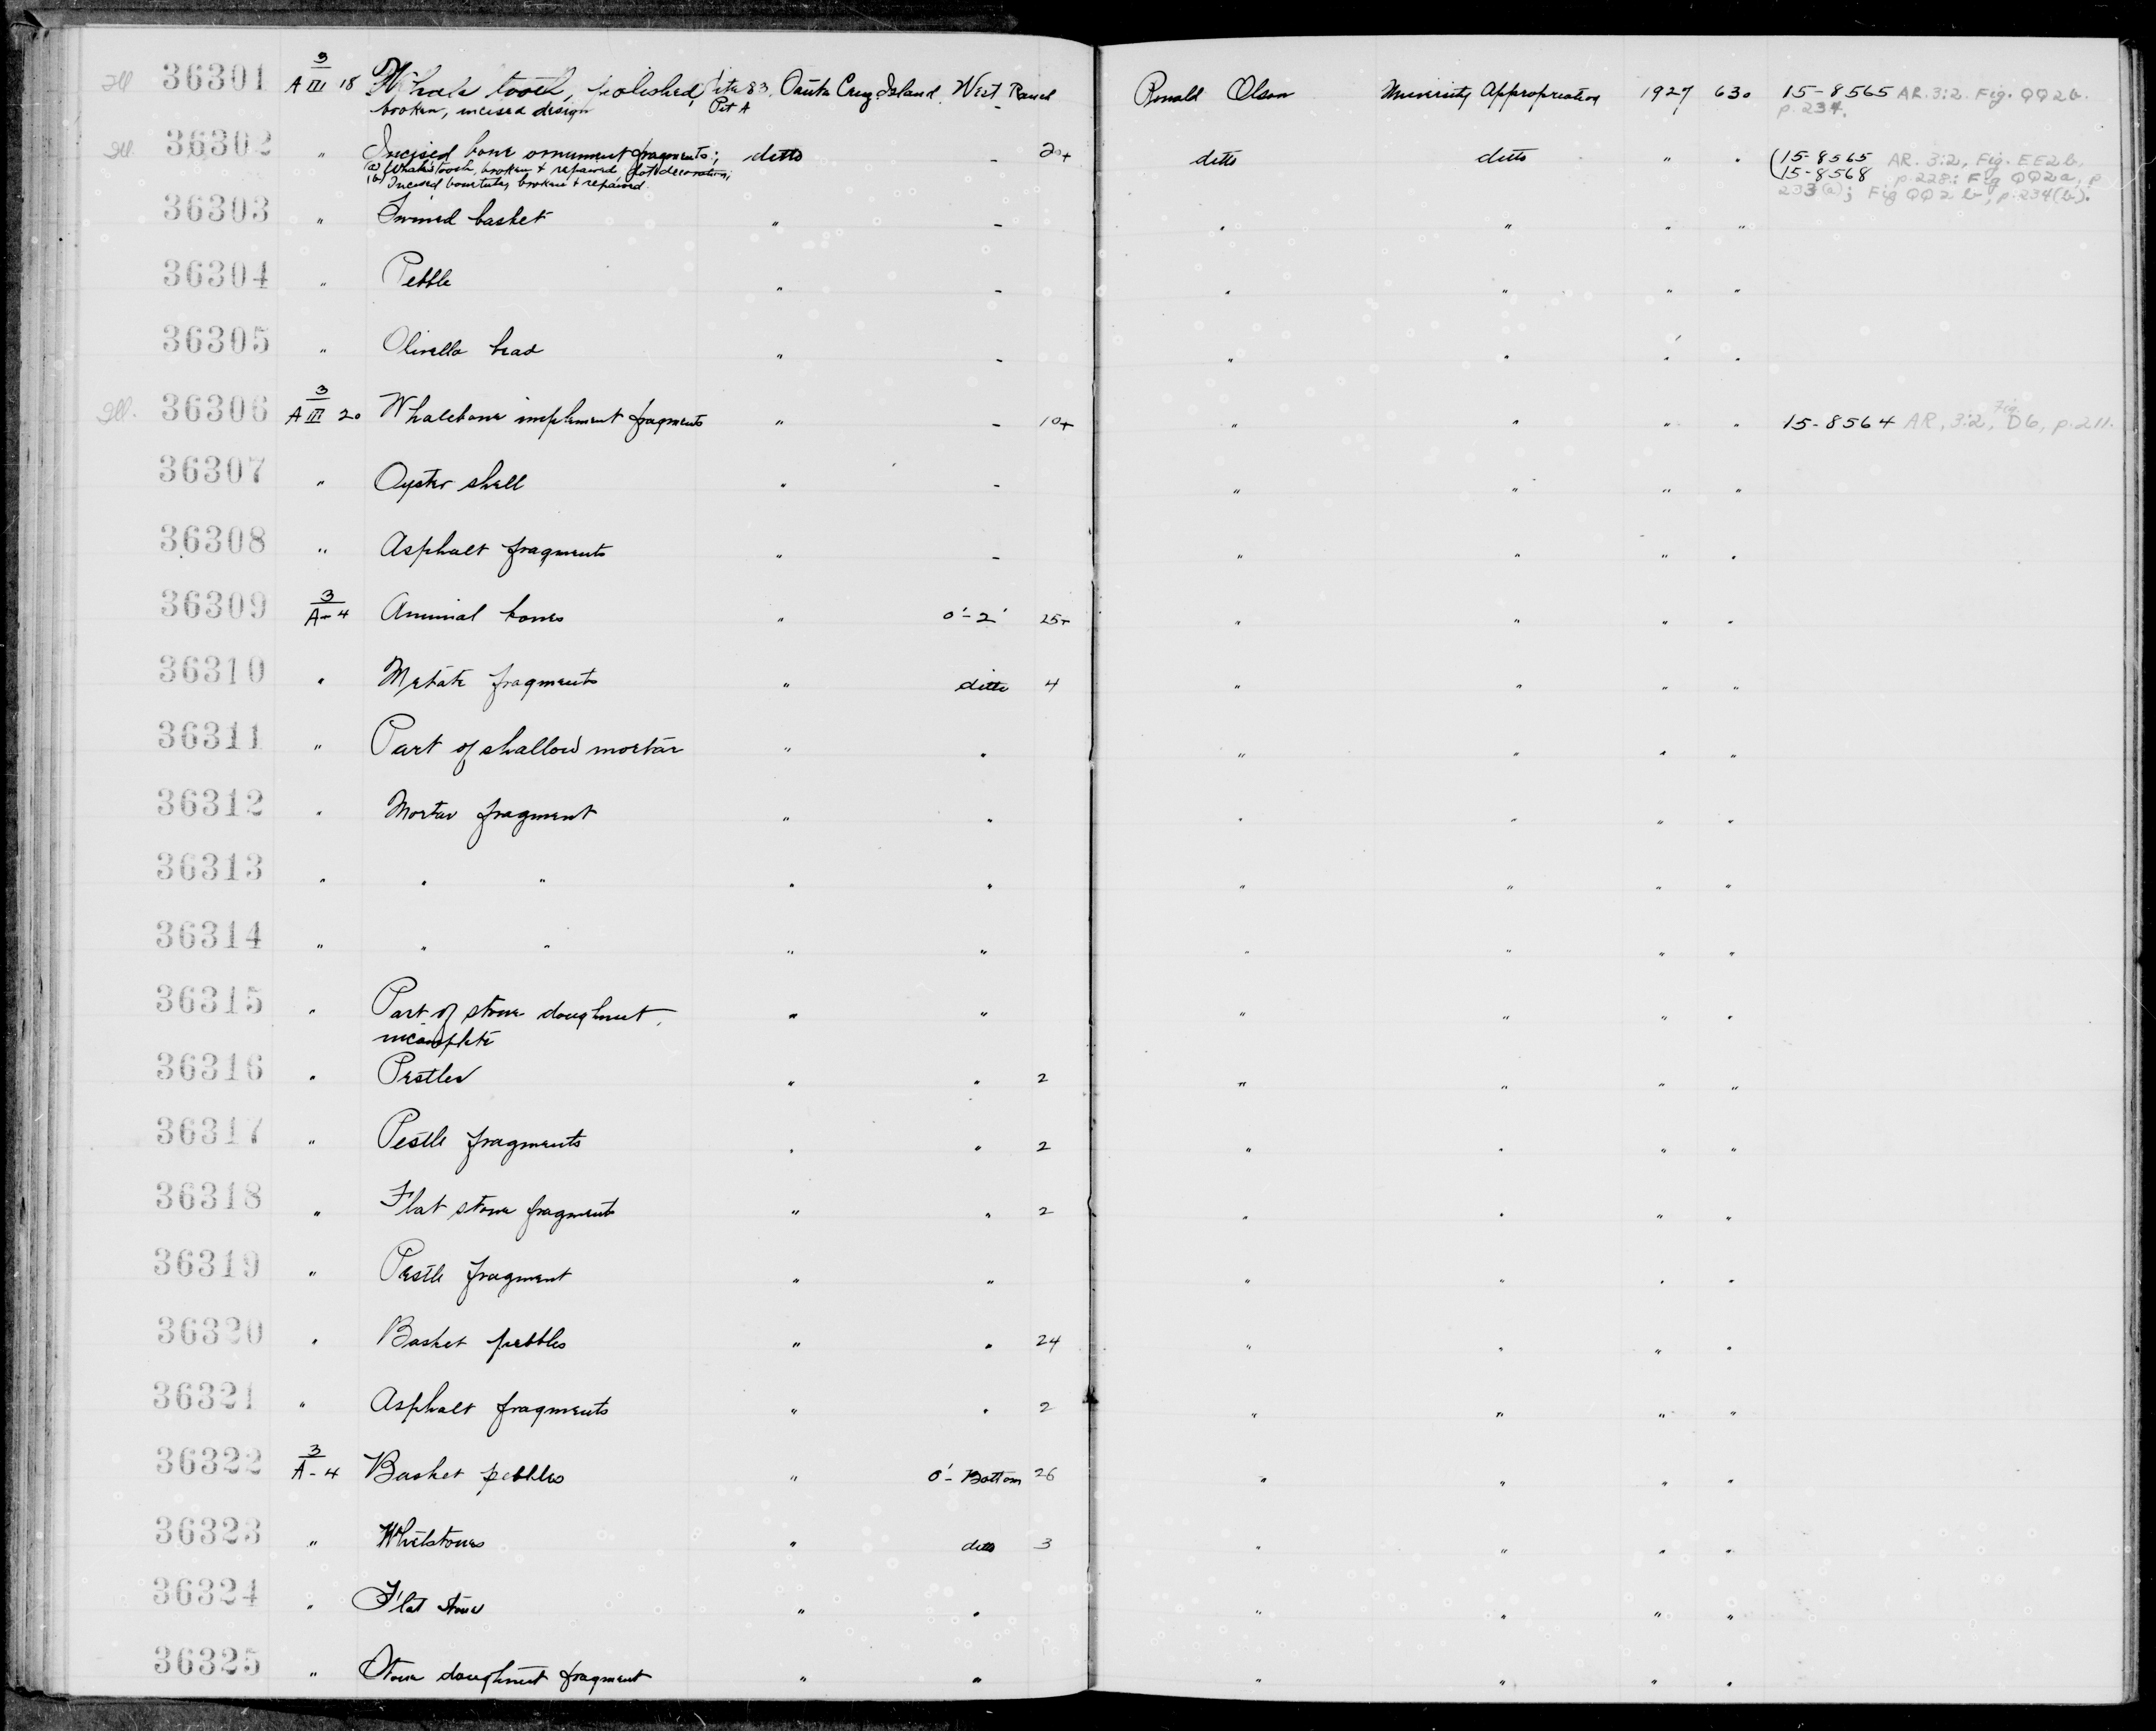 Ill 36301 3/A III 18 Whale tooth, polished, Site 83, Santa Cruz Island, West Ranch Ronald Olson University Appropriation 1927 630 15-8565 AR. 3:2. Fig. QQ2b.
broken, incised design Pit A - p. 234.
Ill. 36302 " Incised bone ornament fragments; ditto - 20+ ditto ditto " " (15-8565 AR. 3:2, Fig. EE2b,
(a) Whale's tooth, broken & repaired, dot decoration; (15-8568 p. 228; Fig QQ2a, p
(b) Incised bone tube, broken & repaired. 233(a); Fig QQ2b, p. 234(b).
36303 " Twined basket " - " " " "
36304 " Pebble " - " " " "
36305 " Olivella bead " - " " " "
Ill. 36306 3/A III 20 Whalebone implement fragments " - 10+ " " " " 15-8564 AR, 3:2, Fig. D6, p. 211.
36307 " Oyster shell " - " " " "
36308 " Asphalt fragments " - " " " "
36309 3/A-4 Animal bones " 0'-2' 25+ " " " "
36310 " Metate fragments " ditto 4 " " " "
36311 " Part of shallow mortar " " " " " "
36312 " Mortar fragment " " " " " "
36313 " " " " " " " " "
36314 " " " " " " " " "
36315 " Part of stone doughnut, " " " " " "
incomplete
36316 " Pestles " " 2 " " " "
36317 " Pestle fragments " " 2 " " " "
36318 " Flat stone fragments " " 2 " " " "
36319 " Pestle fragment " " " " " "
36320 " Basket pebbles " " 24 " " " "
36321 " Asphalt fragments " " 2 " " " "
36322 3/A-4 Basket pebbles " 0'-Bottom 26 " " " "
36323 " Whetstones " ditto 3 " " " "
36324 " Flat stone " " " " " "
36325 " Stone doughnut fragment " " " " " "